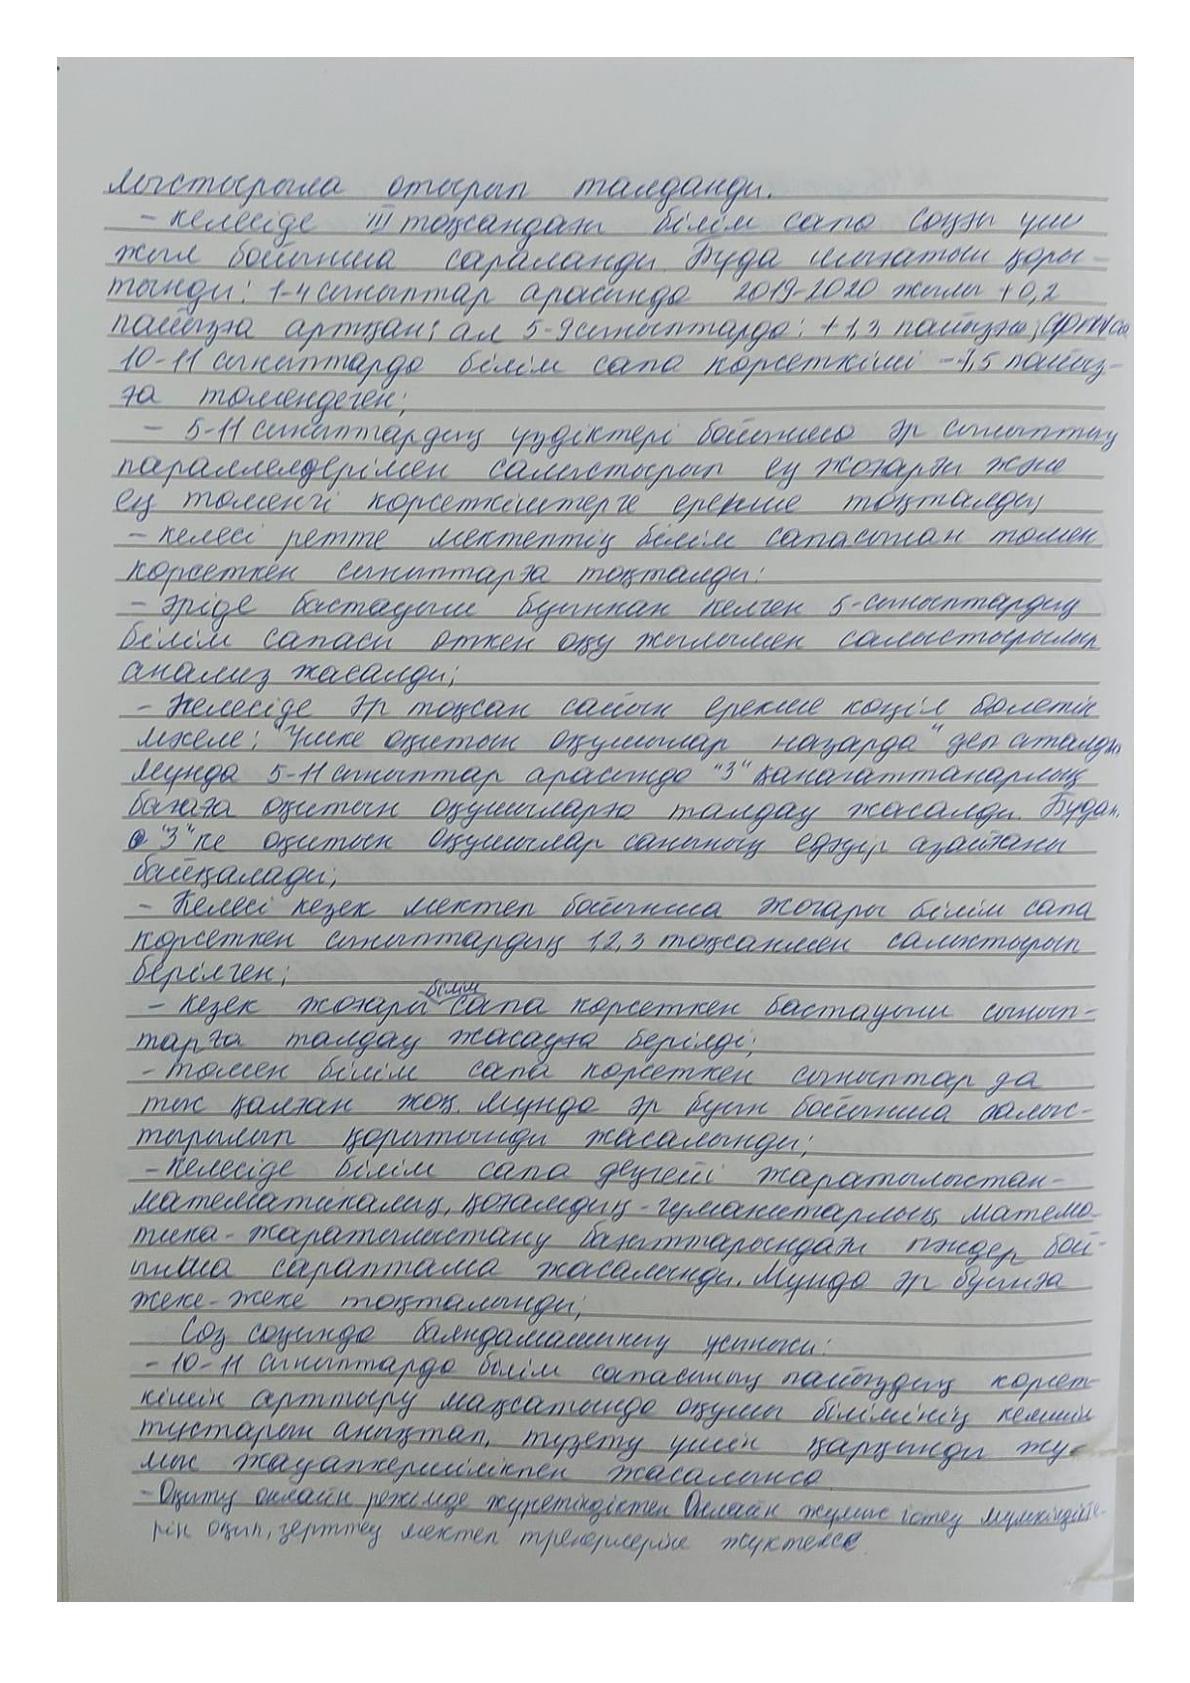 лыстырыла отырып талданды.
- келесіде III тоқсандағы білім сапа соңғы үш
жыл бойынша сараланды. Бұда шығатын қоры-
тынды: 1-4 сыныптар арасында 2019-2020 жылы +0,2
пайызға артқан; ал 5-9 сыныптарда: +1,3 пайызға,
10-11 сыныптарда білім сапа көрсеткіші -1,5 пайыз-
ға төмендеген;
- 5-11 сыныптардың үздіктері бойынша әр сыныптың
параллелдерімен салыстырып ең жоғарғы және
ең төменгі көрсеткіштерге ерекше тоқталды;
- келесі ретте мектептің білім сапасынан төмен
көрсеткен сыныптарға тоқталды:
- әріде бастауыш буыннан келген 5-сыныптардың
білім сапасы өткен оқу жылымен салыстырылып
анализ жасалды;
- Келесіде әр тоқсан сайын ерекше көңіл бөлетін
мәселе: "Үшке оқитын оқушылар назарда" деп аталды
Мұнда 5-11 сыныптар арасында "3" қанағаттанарлық
бағаға оқитын оқушыларға талдау жасалды. Бұдан
"3"ке оқитын оқушылар санының едәуір азайғаны
байқалады;
- Келесі кезек мектеп бойынша жоғары білім сапа
көрсеткен сыныптардың 1,2,3 тоқсанмен салыстырып
берілген;
- Кезек жоғары білім сапа көрсеткен бастауыш сынып-
тарға талдау жасауға берілді;
- төмен білім сапа көрсеткен сыныптар да
тыс қалған жоқ. Мұнда әр буын бойынша салыс-
тырылып қорытынды жасалынды;
- Келесіде білім сапа деңгейі жаратылыстан-
математикалық, қоғамдық-гуманитарлық, матема-
тика-жаратылыстану бағыттарындағы пәндер бой-
ынша сараптама жасалынды. Мұнда әр буынға
жеке-жеке тоқталынды;
Сөз соңында баяндамашының ұсынысы:
- 10-11 сыныптарда білім сапасының пайыздық көрсет-
кішін арттыру мақсатында оқушы білімінің кемшін
тұстарын анықтап, түзету үшін қарқынды жұ-
мыс жауапкершілікпен жасалынса
- Оқыту онлайн режимде жүретіндіктен Онлайн жұмыс істеу мүмкіндікте-
рін оқып, зерттеу мектеп тренерлеріне жүктелсе